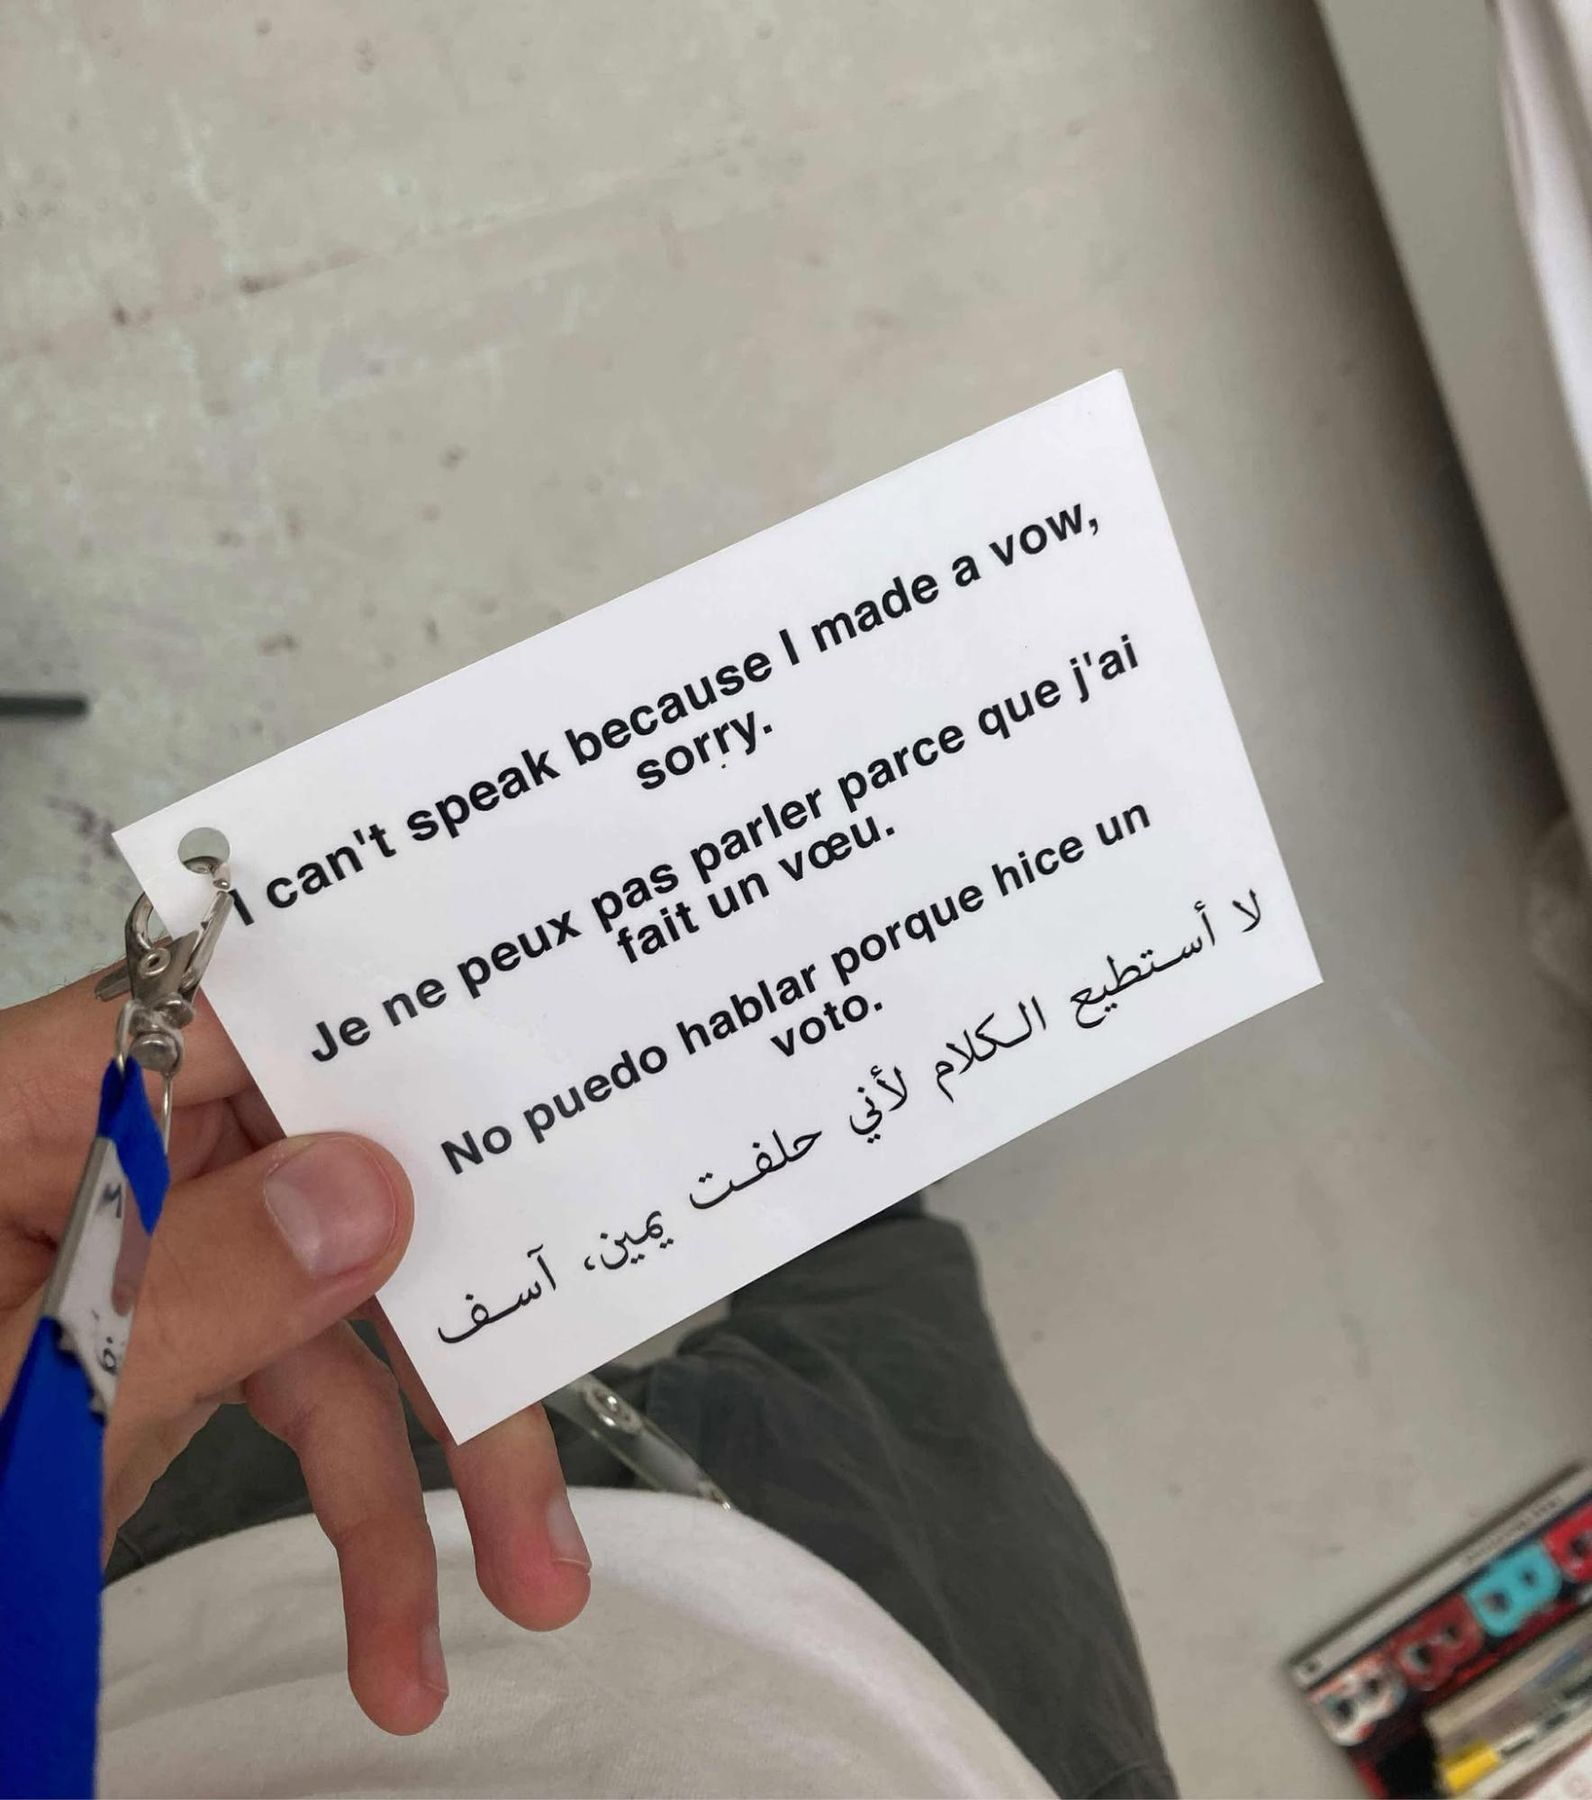 I can't speak because I made a vow,
sorry.
Je ne peux pas parler parce que j'ai
fait un vœu.
No puedo hablar porque hice un
voto.
لا أستطيع الكلام لأني حلفت يمين، آسف